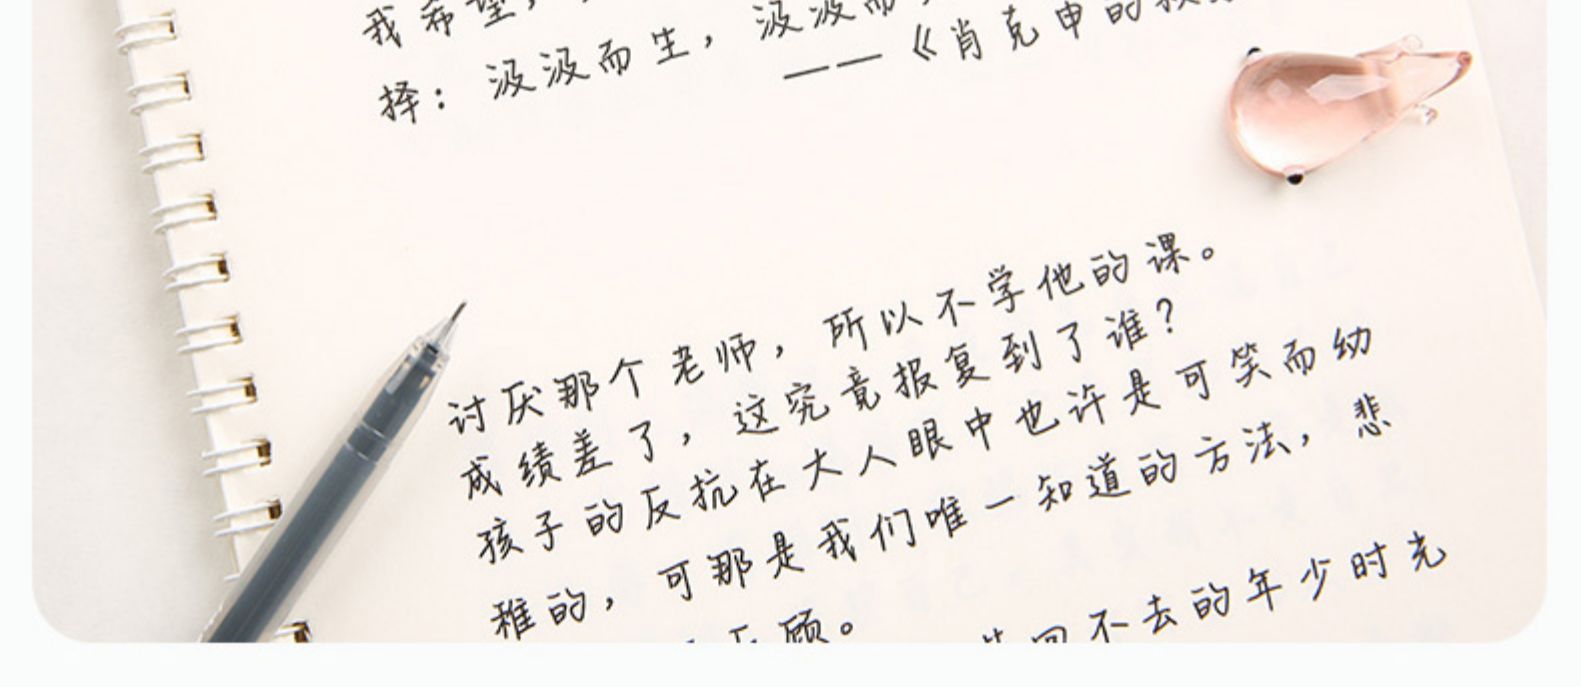 我希望，
择：汲汲而生，汲汲而
——《肖克申的
讨厌那个老师，所以不学他的课。
成绩差了，这究竟报复到了谁？
孩子的反抗在大人眼中也许是可笑而幼
稚的，可那是我们唯一知道的方法，悲
不顾。
回不去的年少时光